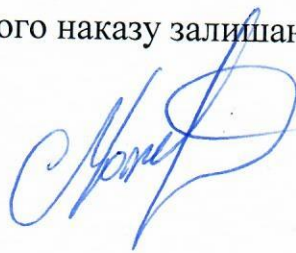 ого наказу залишаю